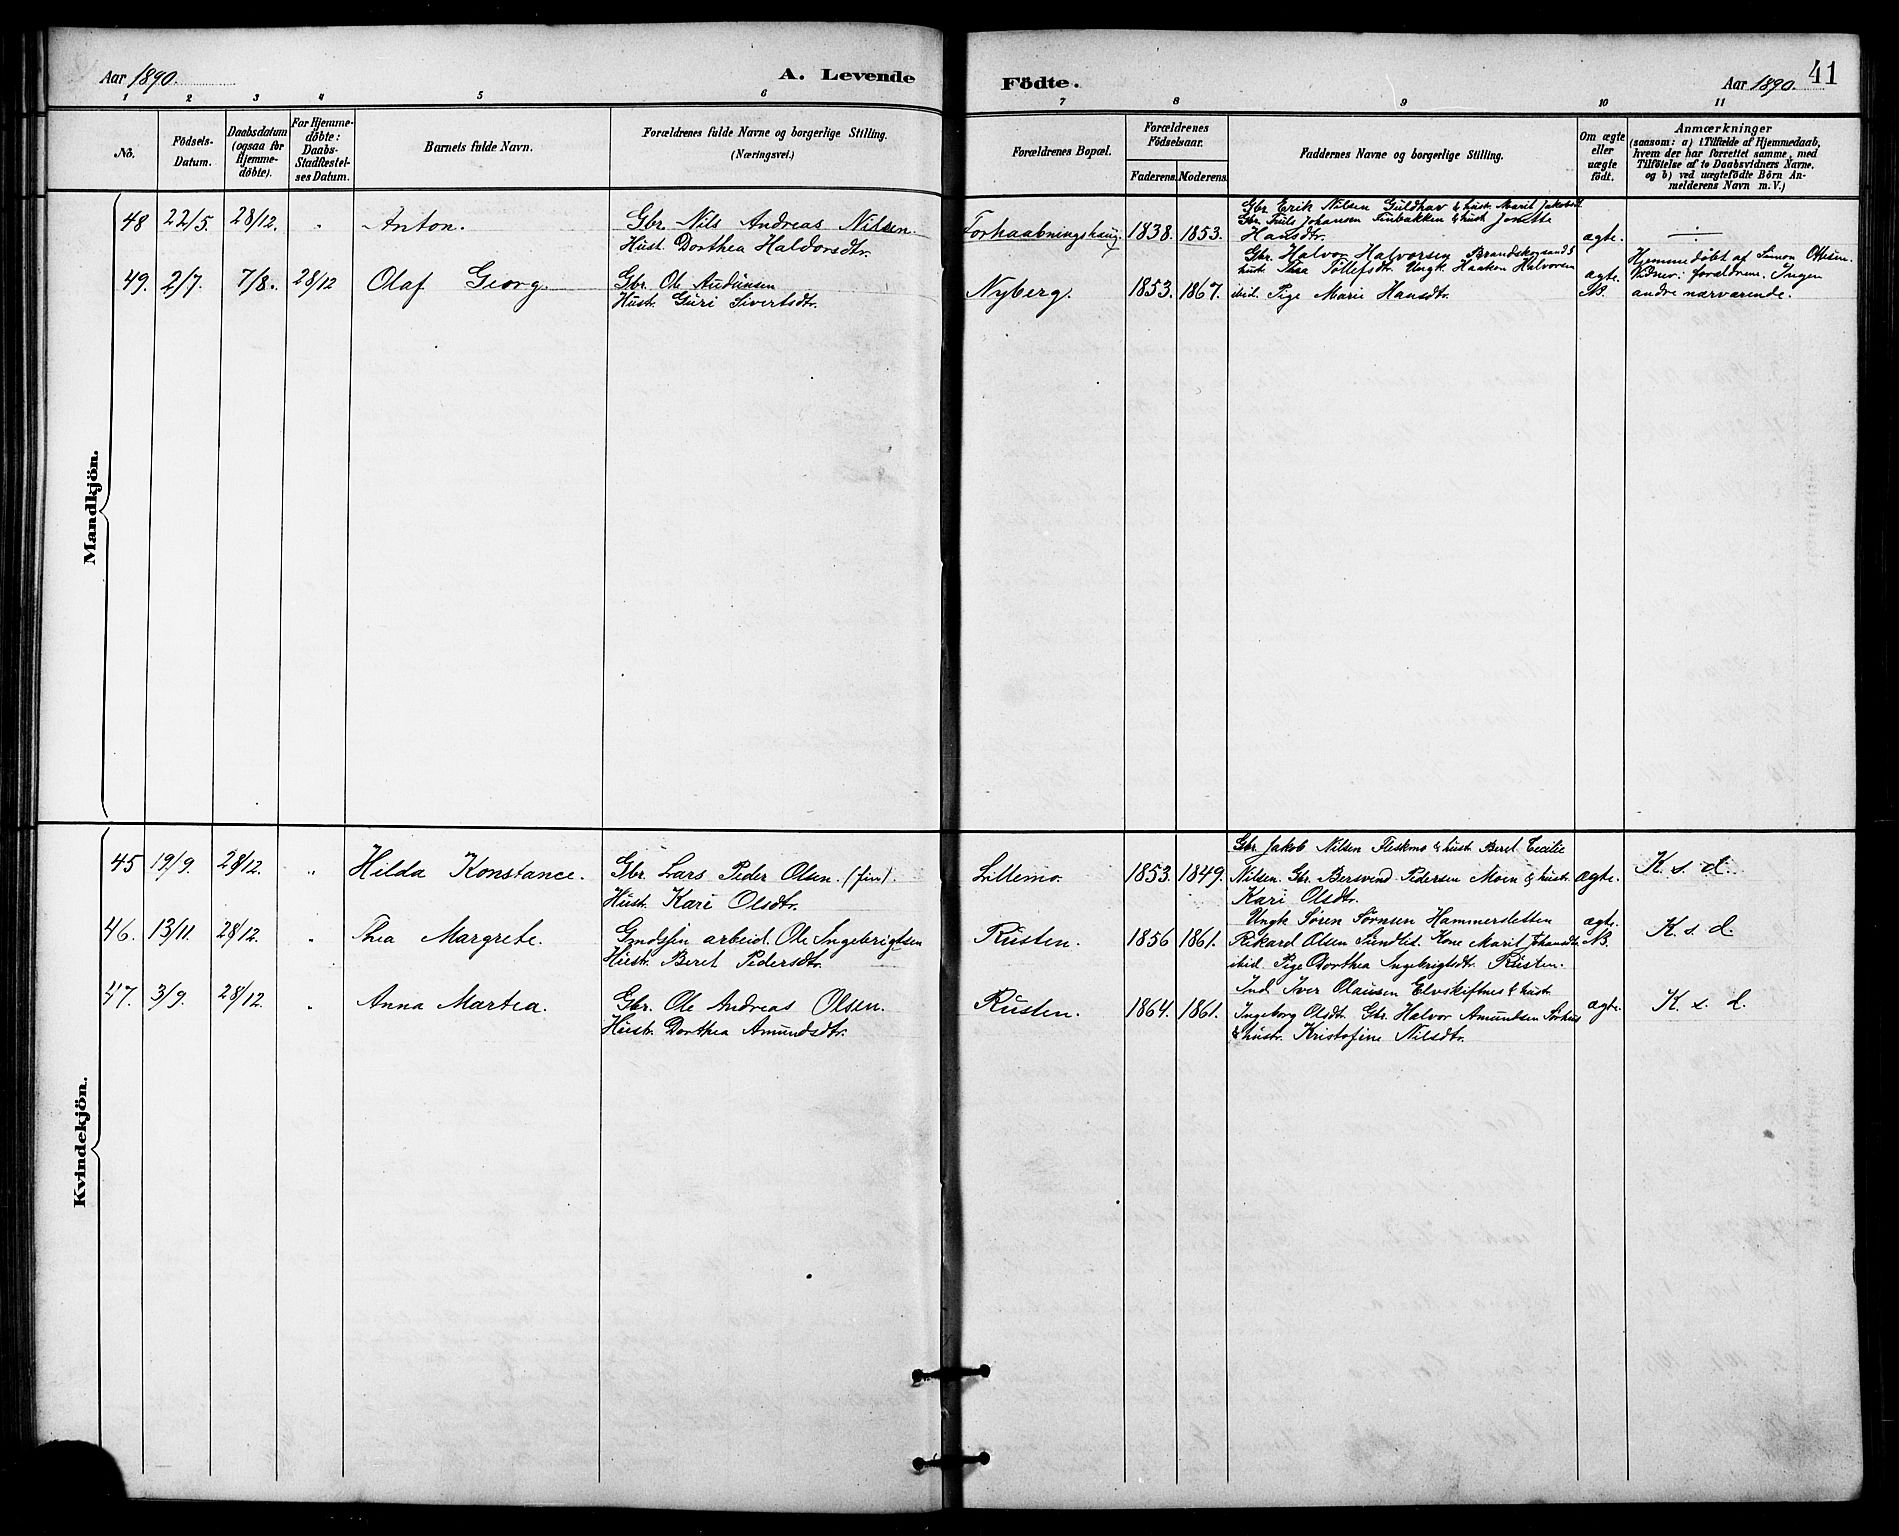 Aar 1890.
A. Levende
1 2 3 4 5 6
No.
Födsels-Datum.
Daabsdatum (ogsaa for Hjemme-døbte).
For Hjemme-døbte: Daabs-Stadfæstel-ses Datum.
Barnets fulde Navn.
Forældrenes fulde Navne og borgerlige Stilling.
(Næringsvei.)
Mandkjön.
48 22/5. 28/12. " Anton. Gbr. Nils Andreas Nilsen.
Hust. Dorthea Haldorsdtr.
49. 2/7. 7/8. 28/12 Olaf Georg. Gbr. Ole Audunsen
Hust. Guri Sivertsdtr.
Kvindekjön.
45 19/9. 28/12. " Hilda Konstance. Gbr. Lars Peder Olsen. (fin).
Hust. Kari Olsdtr.
46. 13/11. 28/12. " Thea Margrete. arbeid. Ole Ingebrigtsen
Hust. Beret Pedersdtr.
47. 3/9. 28/12. " Anna Martea. Gbr. Ole Andreas Olsen.
Hust. Dorthea Amundsdtr.
Födte.
Aar 1890.
41
7 8 9 10 11
Forældrenes Bopæl.
Forældrenes Födselsaar.
Faderens. Moderens.
Faddernes Navne og borgerlige Stilling.
Om ægte eller uægte födt.
Anmærkninger
(saasom: a) i Tilfælde af Hjemmedaab,
hvem der har forrettet samme, med
Tilföielse af to Daabsvidners Navne.
og b) ved uægtefödte Börn An-
melderens Navn m. V.)
Gbr. Erik Nilsen Guldhav & hust. Marit Jakobsd
Forhaabningshaug. 1838. 1853. Gbr. Truls Johansen Finbakken & hust. Jonette
Hansdtr. ægte. ÷
Gbr. Halvor Halvorsen Brandskognes &
Hjemmedöbt af Simon Ottesen.
hust. Thea Tollefsdtr. Ungk. Haaken Halvorsen ægte. Vidner: forældrene. Ingen
Nyberg. 1853. 1867. ibid. Pige Marie Hansdtr. NB. andre nærværende.
Gbr. Jakob Nilsen Fleskmo & hust. Beret Cecilie
Lillemo. 1853. 1849. Nilsen. Gbr. Bersvend Pedersen Moen & hustr. ægte. K. s. d.
Kari Olsdtr.
Ungk. Søren Sørnsen Hammersletten ægte.
Rusten. 1856 1861. Rikard Olsen Sundli. Kone Marit Johansdt. NB. K. s. d.
ibid. Pige Dorthea Ingebrigtsdt. Rusten.
Ind. Iver Olausen Elvskiftnes & hust.
Rusten. 1864. 1861. Ingeborg Olsdt. Gbr. Halvor Amundsen Sørhus ægte. K. s. d.
& hustr. Kristofine Nilsdtr.